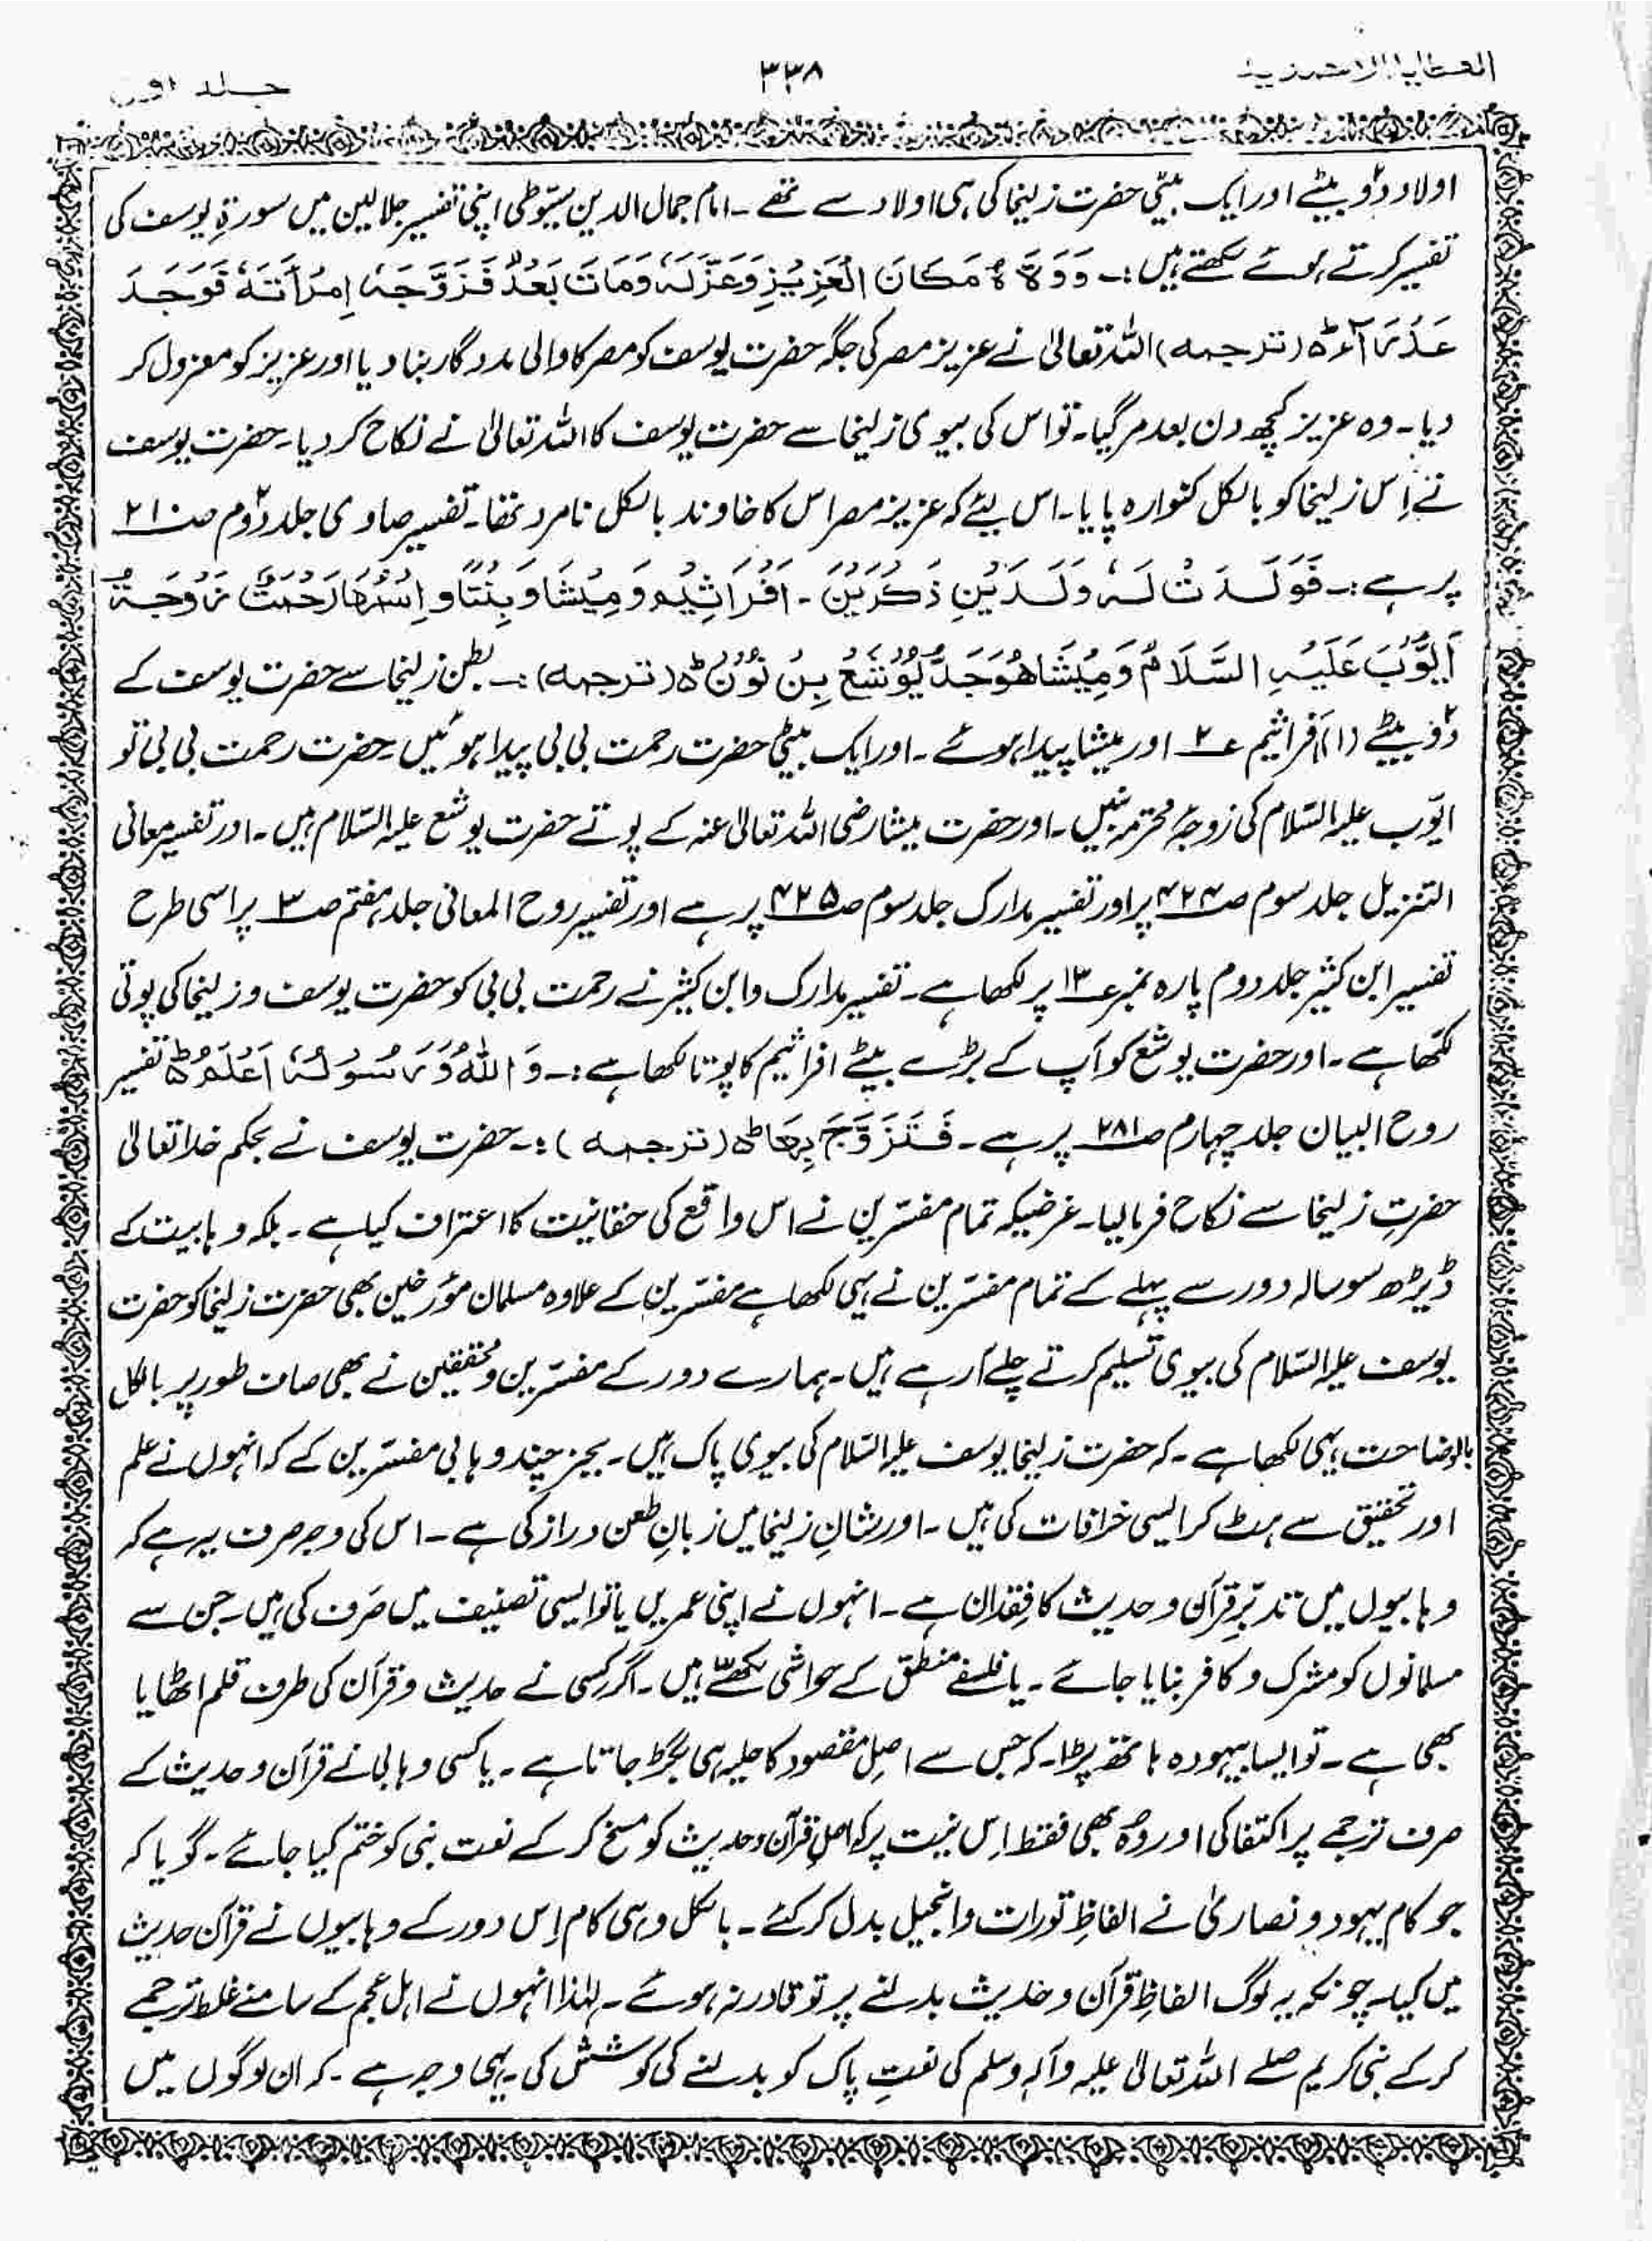 العطایا الاحمدیہ
۳۳۸
جلد اول
اولاد دو بیٹے اور ایک بیٹی حضرت زلیخا کی ہی اولاد سے تھے ۔ امام جمال الدین سیّوطی اپنی تفسیر جلالین میں سورۃِ یوسف کی
تفسیر کرتے ہوئے لکھتے ہیں :۔ وَوَلَّاہُ مَکَانَ الْعَزِیْزِ وَعَزَلَہٗ وَمَاتَ بَعْدُ فَزَوَّجَہٗ اِمْرَأَتَہٗ فَوَجَدَ
عَذْرَآءَ ہ (ترجمہ) اللہ تعالیٰ نے عزیز مصر کی جگہ حضرت یوسف کو مصر کا والی مددگار بنا دیا اور عزیز کو معزول کر
دیا ۔ وہ عزیز کچھ دن بعد مر گیا ۔ تو اس کی بیوی زلیخا سے حضرت یوسف کا اللہ تعالیٰ نے نکاح کر دیا ۔ حضرت یوسف
نے اِس زلیخا کو بالکل کنوارہ پایا ۔ اس لیئے کہ عزیز مصر اس کا خاوند بالکل نامرد تھا ۔ تفسیر صاوی جلد دوم صـ۲۱۰
پر ہے :۔ فَوَلَدَتْ لَہٗ وَلَدَیْنِ ذَکَرَیْنَ ۔ اَفْرَاثِیْم وَمِیْشَا وَبِنْتًا وَاِسْمُهَا رَحْمَتْ زَوْجَۃُ
اَیُّوْبَ عَلَیْہِ السَّلَامُ وَمِیْشَا هُوَ جَدُّ یُوْشَعُ بِنْ نُوْنْ ہ (ترجمہ) :۔ بطن زلیخا سے حضرت یوسف کے
دو بیٹے (۱) افراثیم ۲؎ اور میشا پیدا ہوئے ۔ اور ایک بیٹی حضرت رحمت بی بی پیدا ہوئیں ۔ حضرت رحمت بی بی تو
ایّوب علیہ السّلام کی زوجۂ محترمہ بنیں ۔ اور حضرت میشا رضی اللہ تعالیٰ عنہ کے پوتے حضرت یوشع علیہ السّلام ہیں ۔ اور تفسیر معانی
التنزیل جلد سوم صـ۴۲۴ پر اور تفسیر مدارک جلد سوم صـ۴۲۵ پر ہے اور تفسیر روح المعانی جلد ہفتم صـ۳ پر اسی طرح
تفسیر ابن کثیر جلد دوم پارہ نمبر ۱۳ پر لکھا ہے ۔ تفسیر مدارک و ابن کثیر نے رحمت بی بی کو حضرت یوسف و زلیخا کی پوتی
لکھا ہے ۔ اور حضرت یوشع کو آپ کے بڑے بیٹے افراثیم کا پوتا لکھا ہے :۔ وَاللہُ وَرَسُوْلُہٗ اَعْلَمُ ہ تفسیر
روح البیان جلد چہارم صـ۲۸۱ پر ہے ۔ فَتَزَوَّجَ بِهَا ہ (ترجمہ) :۔ حضرت یوسف نے بحکم خدا تعالیٰ
حضرتِ زلیخا سے نکاح فرمالیا ۔ غرضیکہ تمام مفسّرین نے اس واقع کی حقانیت کا اعتراف کیا ہے ۔ بلکہ وہابیت کے
ڈیڑھ سو سالہ دور سے پہلے کے تمام مفسّرین نے یہی لکھا ہے مفسّرین کے علاوہ مسلمان مؤرخین بھی حضرت زلیخا کو حضرت
یوسف علیہ السّلام کی بیوی تسلیم کرتے چلے آرہے ہیں ۔ ہمارے دور کے مفسّرین و محققین نے بھی صاف طور پر بالکل
بالوضاحت یہی لکھا ہے ۔ کہ حضرت زلیخا یوسف علیہ السّلام کی بیوی پاک ہیں ۔ بجز چند وہابی مفسّرین کے کہ انہوں نے علم
اور تحقیق سے ہٹ کر ایسی خرافات کی ہیں ۔ اور شانِ زلیخا میں زبانِ طعن دراز کی ہے ۔ اس کی وجہ صرف یہ ہے کہ
وہابیوں میں تدبّرِ قرآن و حدیث کا فقدان ہے ۔ انہوں نے اپنی عمریں یا تو ایسی تصنیف میں صَرف کی ہیں ۔ جن سے
مسلمانوں کو مشرک و کافر بنایا جائے ۔ یا فلسفے منطق کے حواشی لکھے ہیں ۔ اگر کسی نے حدیث و قرآن کی طرف قلم اٹھایا
بھی ہے ۔ تو ایسا بیہودہ ہاتھ پڑا ۔ کہ جس سے اصل مقصود کا حلیہ ہی بگڑ جاتا ہے ۔ یا کسی وہابی نے قرآن و حدیث کے
صرف ترجمے پر اکتفا کی اور وہ بھی فقط اِس نیت پر کہ اصلِ قرآن و حدیث کو مسخ کر کے نعت نبی کو ختم کیا جائے ۔ گویا کہ
جو کام یہود و نصاریٰ نے الفاظِ تورات و انجیل بدل کر کئے ۔ بالکل وہی کام اِس دور کے وہابیوں نے قرآن حدیث
میں کیا ۔ چونکہ یہ لوگ الفاظِ قرآن و حدیث بدلنے پر تو قادر نہ ہوئے ۔ لہٰذا انہوں نے اہل عجم کے سامنے غلط ترجمے
کر کے نبی کریم صلے اللہ تعالیٰ علیہ وآلہ وسلم کی نعتِ پاک کو بدلنے کی کوشش کی ۔ یہی وجہ ہے ۔ کہ ان لوگوں میں